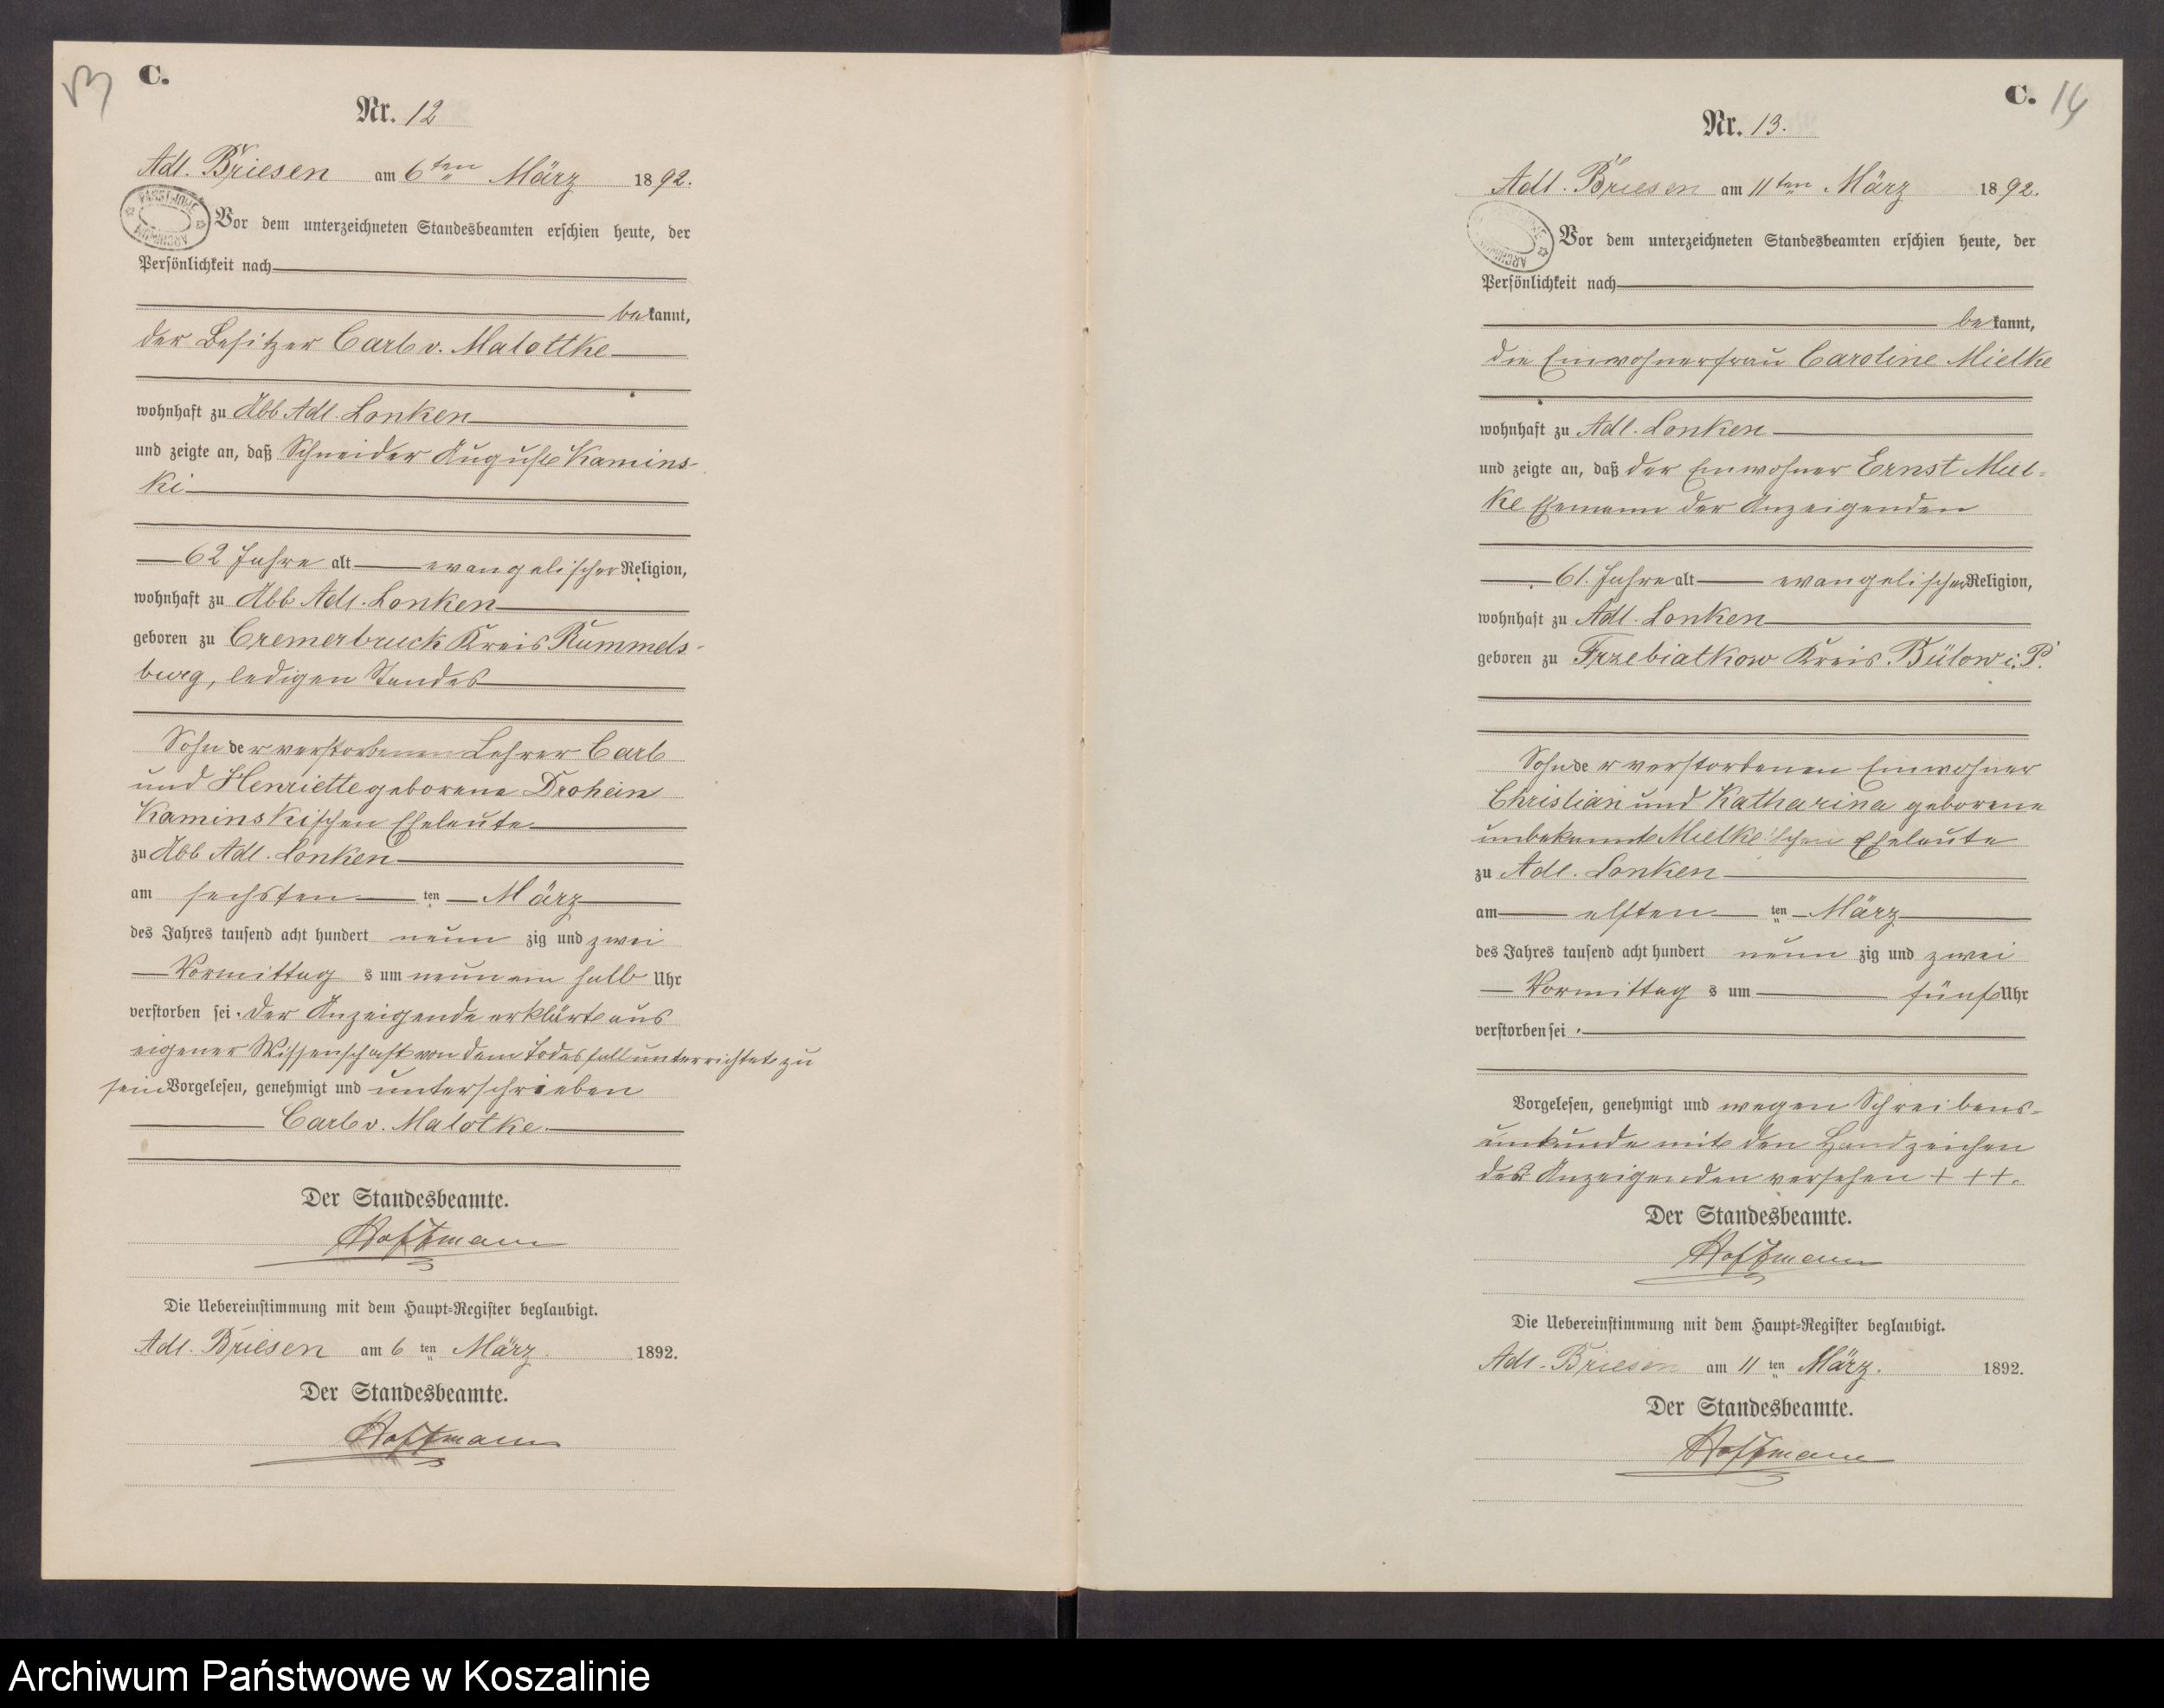 13
C.
Nr. 12
Adl. Briesen am 6ten März 1892.
Vor dem unterzeichneten Standesbeamten erschien heute, der
Persönlichkeit nach
bekannt,
der Besitzer Carl v. Malottke
wohnhaft zu Abb Adl. Lonken
und zeigte an, daß Schneider August Kamins-
ki
62 Jahre alt evangelischer Religion,
wohnhaft zu Abb Adl. Lonken
geboren zu Cremerbruck Kreis Rummels-
burg, ledigen Standes
Sohn der verstorbenen Lehrer Carl
und Henriette geborene Drohein
Kaminskischen Eheleute
zu Abb Adl. Lonken
am sechsten ten März
des Jahres tausend acht hundert neun zig und zwei
Vormittag s um neun ein halb Uhr
verstorben sei. Der Anzeigende erklärte aus
eigener Wissenschaft von dem Todesfall unterrichtet zu
sein Vorgelesen, genehmigt und unterschrieben
Carl v. Malotke.
Der Standesbeamte.
Hoffmann
Die Uebereinstimmung mit dem Haupt-Register beglaubigt.
Adl. Briesen am 6 ten März. 1892.
Der Standesbeamte.
Hoffmann
C. 14
Nr. 13.
Adl. Briesen am 11ten März 1892.
Vor dem unterzeichneten Standesbeamten erschien heute, der
Persönlichkeit nach
bekannt,
die Einwohnerfrau Caroline Mielke
wohnhaft zu Adl. Lonken
und zeigte an, daß der Einwohner Ernst Miel-
ke Ehemann der Anzeigenden
61. Jahre alt evangelischer Religion,
wohnhaft zu Adl. Lonken
geboren zu Trzebiatkow Kreis Bütow i. P.
Sohn der verstorbenen Einwohner
Christian und Katharina geborene
unbekannt Mielke'schen Eheleute
zu Adl. Lonken
am elften ten März
des Jahres tausend acht hundert neun zig und zwei
Vormittag s um fünf Uhr
verstorben sei.
Vorgelesen, genehmigt und wegen Schreibens-
unkunde mit den Handzeichen
des Anzeigenden versehen + + +.
Der Standesbeamte.
Hoffmann
Die Uebereinstimmung mit dem Haupt-Register beglaubigt.
Adl. Briesen am 11 ten März. 1892.
Der Standesbeamte.
Hoffmann
Archiwum Państwowe w Koszalinie